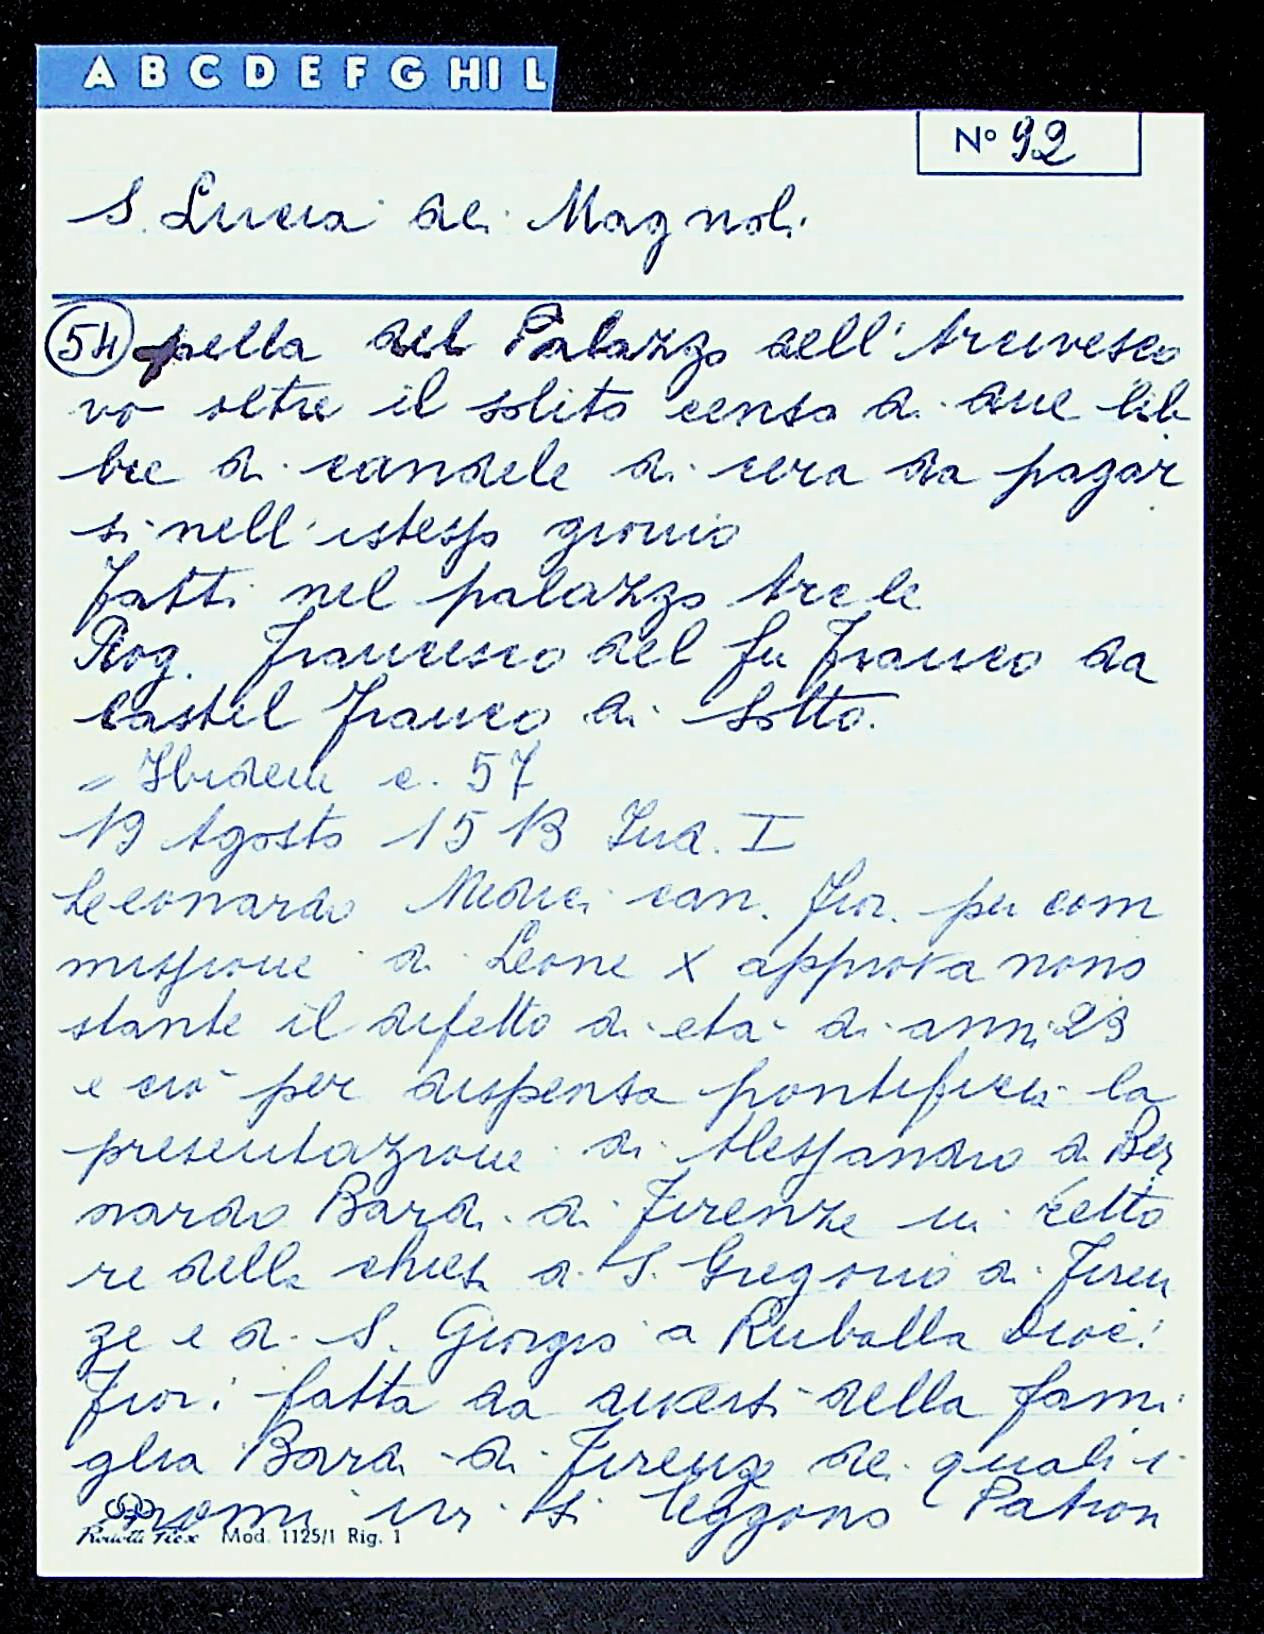 A B C D E F G HI L
N° 92
S. Lucia dei Magnoli
54 pella del Palazzo dell'Arcivesco
vo oltre il solito censo di due lib
bre di candele di cera da pagar
si nell'istesso giorno
Fatti nel palazzo Arcle
Rog. Francesco del fu Franco da
Castel Franco di Sotto.
= Ibidem c. 57
19 Agosto 1513 Ind. I
Leonardo Medici can. fior. per com
missione di Leone X approva nono
stante il difetto di età di anni 23
e ciò per dispensa pontificia la
presentazione di Alessandro di Ber
nardo Bardi di Firenze in retto
re della chiesa di S. Gregorio di Firen
ze e di S. Giorgio a Ruballa Dioc:
Fior: fatta da diversi della fami
glia Bardi di Firenze dei quali i
nomi ivi si leggono Patron
Mod. 1125/1 Rig. 1